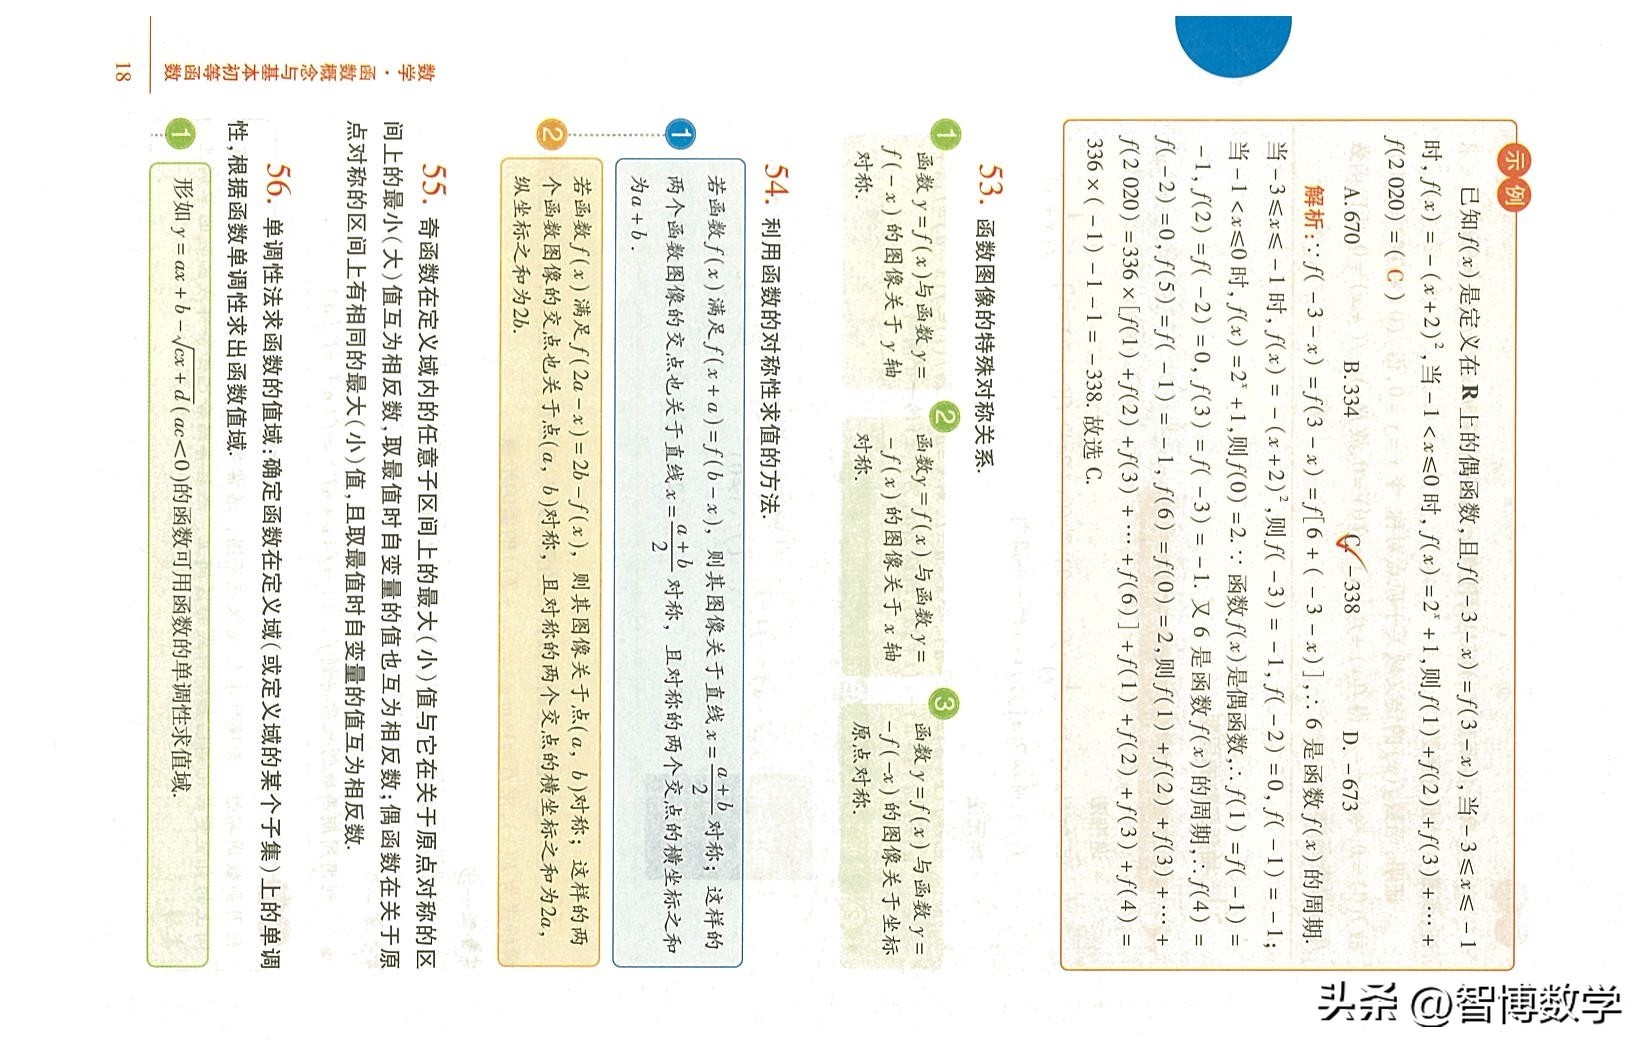 示例
已知f(x)是定义在R上的偶函数,且f(-3-x)=f(3-x),当-3≤x≤-1
时,f(x)=-(x+2)²,当-1<x≤0时,f(x)=2ˣ+1,则f(1)+f(2)+f(3)+…+
f(2 020)=( C )
A. 670 B. 334 C. -338 D. -673
解析:∵f(-3-x)=f(3-x)=f[6+(-3-x)],∴6是函数f(x)的周期.
当-3≤x≤-1时,f(x)=-(x+2)²,则f(-3)=-1,f(-2)=0,f(-1)=-1;
当-1<x≤0时,f(x)=2ˣ+1,则f(0)=2.∵函数f(x)是偶函数,∴f(1)=f(-1)=
-1,f(2)=f(-2)=0,f(3)=f(-3)=-1.又6是函数f(x)的周期,∴f(4)=
f(-2)=0,f(5)=f(-1)=-1,f(6)=f(0)=2,则f(1)+f(2)+f(3)+…+
f(2 020)=336×[f(1)+f(2)+f(3)+…+f(6)]+f(1)+f(2)+f(3)+f(4)=
336×(-1)-1-1=-338.故选C.
53. 函数图像的特殊对称关系.
1
函数y=f(x)与函数y=
f(-x)的图像关于y轴
对称.
2
函数y=f(x)与函数y=
-f(x)的图像关于x轴
对称.
3
函数y=f(x)与函数y=
-f(-x)的图像关于坐标
原点对称.
54. 利用函数的对称性求值的方法.
1
若函数f(x)满足f(x+a)=f(b-x),则其图像关于直线x=\frac{a+b}{2}对称;这样的
两个函数图像的交点也关于直线x=\frac{a+b}{2}对称,且对称的两个交点的横坐标之和
为a+b.
2
若函数f(x)满足f(2a-x)=2b-f(x),则其图像关于点(a,b)对称;这样的两
个函数图像的交点也关于点(a,b)对称,且对称的两个交点的横坐标之和为2a,
纵坐标之和为2b.
55. 奇函数在定义域内的任意子区间上的最大(小)值与它在关于原点对称的区
间上的最小(大)值互为相反数,取最值时自变量的值也互为相反数;偶函数在关于原
点对称的区间上有相同的最大(小)值,且取最值时自变量的值互为相反数.
56. 单调性法求函数的值域:确定函数在定义域(或定义域的某个子集)上的单调
性,根据函数单调性求出函数值域.
1
形如y=ax+b-√cx+d(ac<0)的函数可用函数的单调性求值域.
数学·函数概念与基本初等函数
18
头条 @智博数学